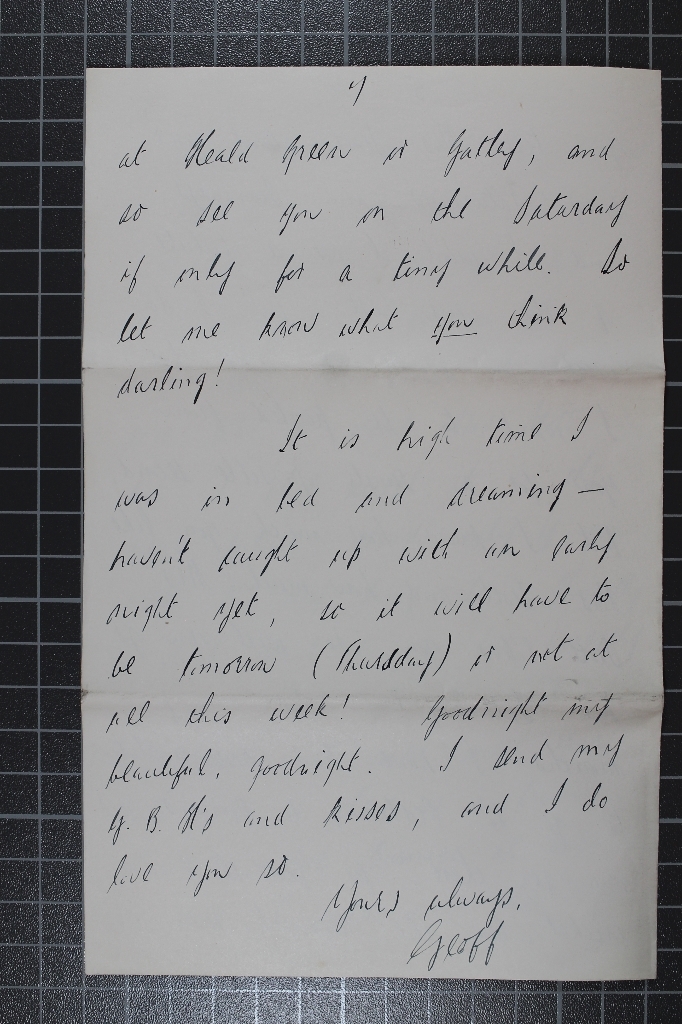 at Heald Green or Gatley, and
so see you on the Saturday
if only for a tiny while. So
let me know what you think
darling!
It is high time I
was in bed and dreaming —
haven't caught up with an early
night yet, so it will have to
be tomorrow (Thursdday) or not at
all this week! Goodnight my
beautiful, goodnight. I send my
G. B. H's and kisses, and I do
love you so.
Yours always,
Geoff